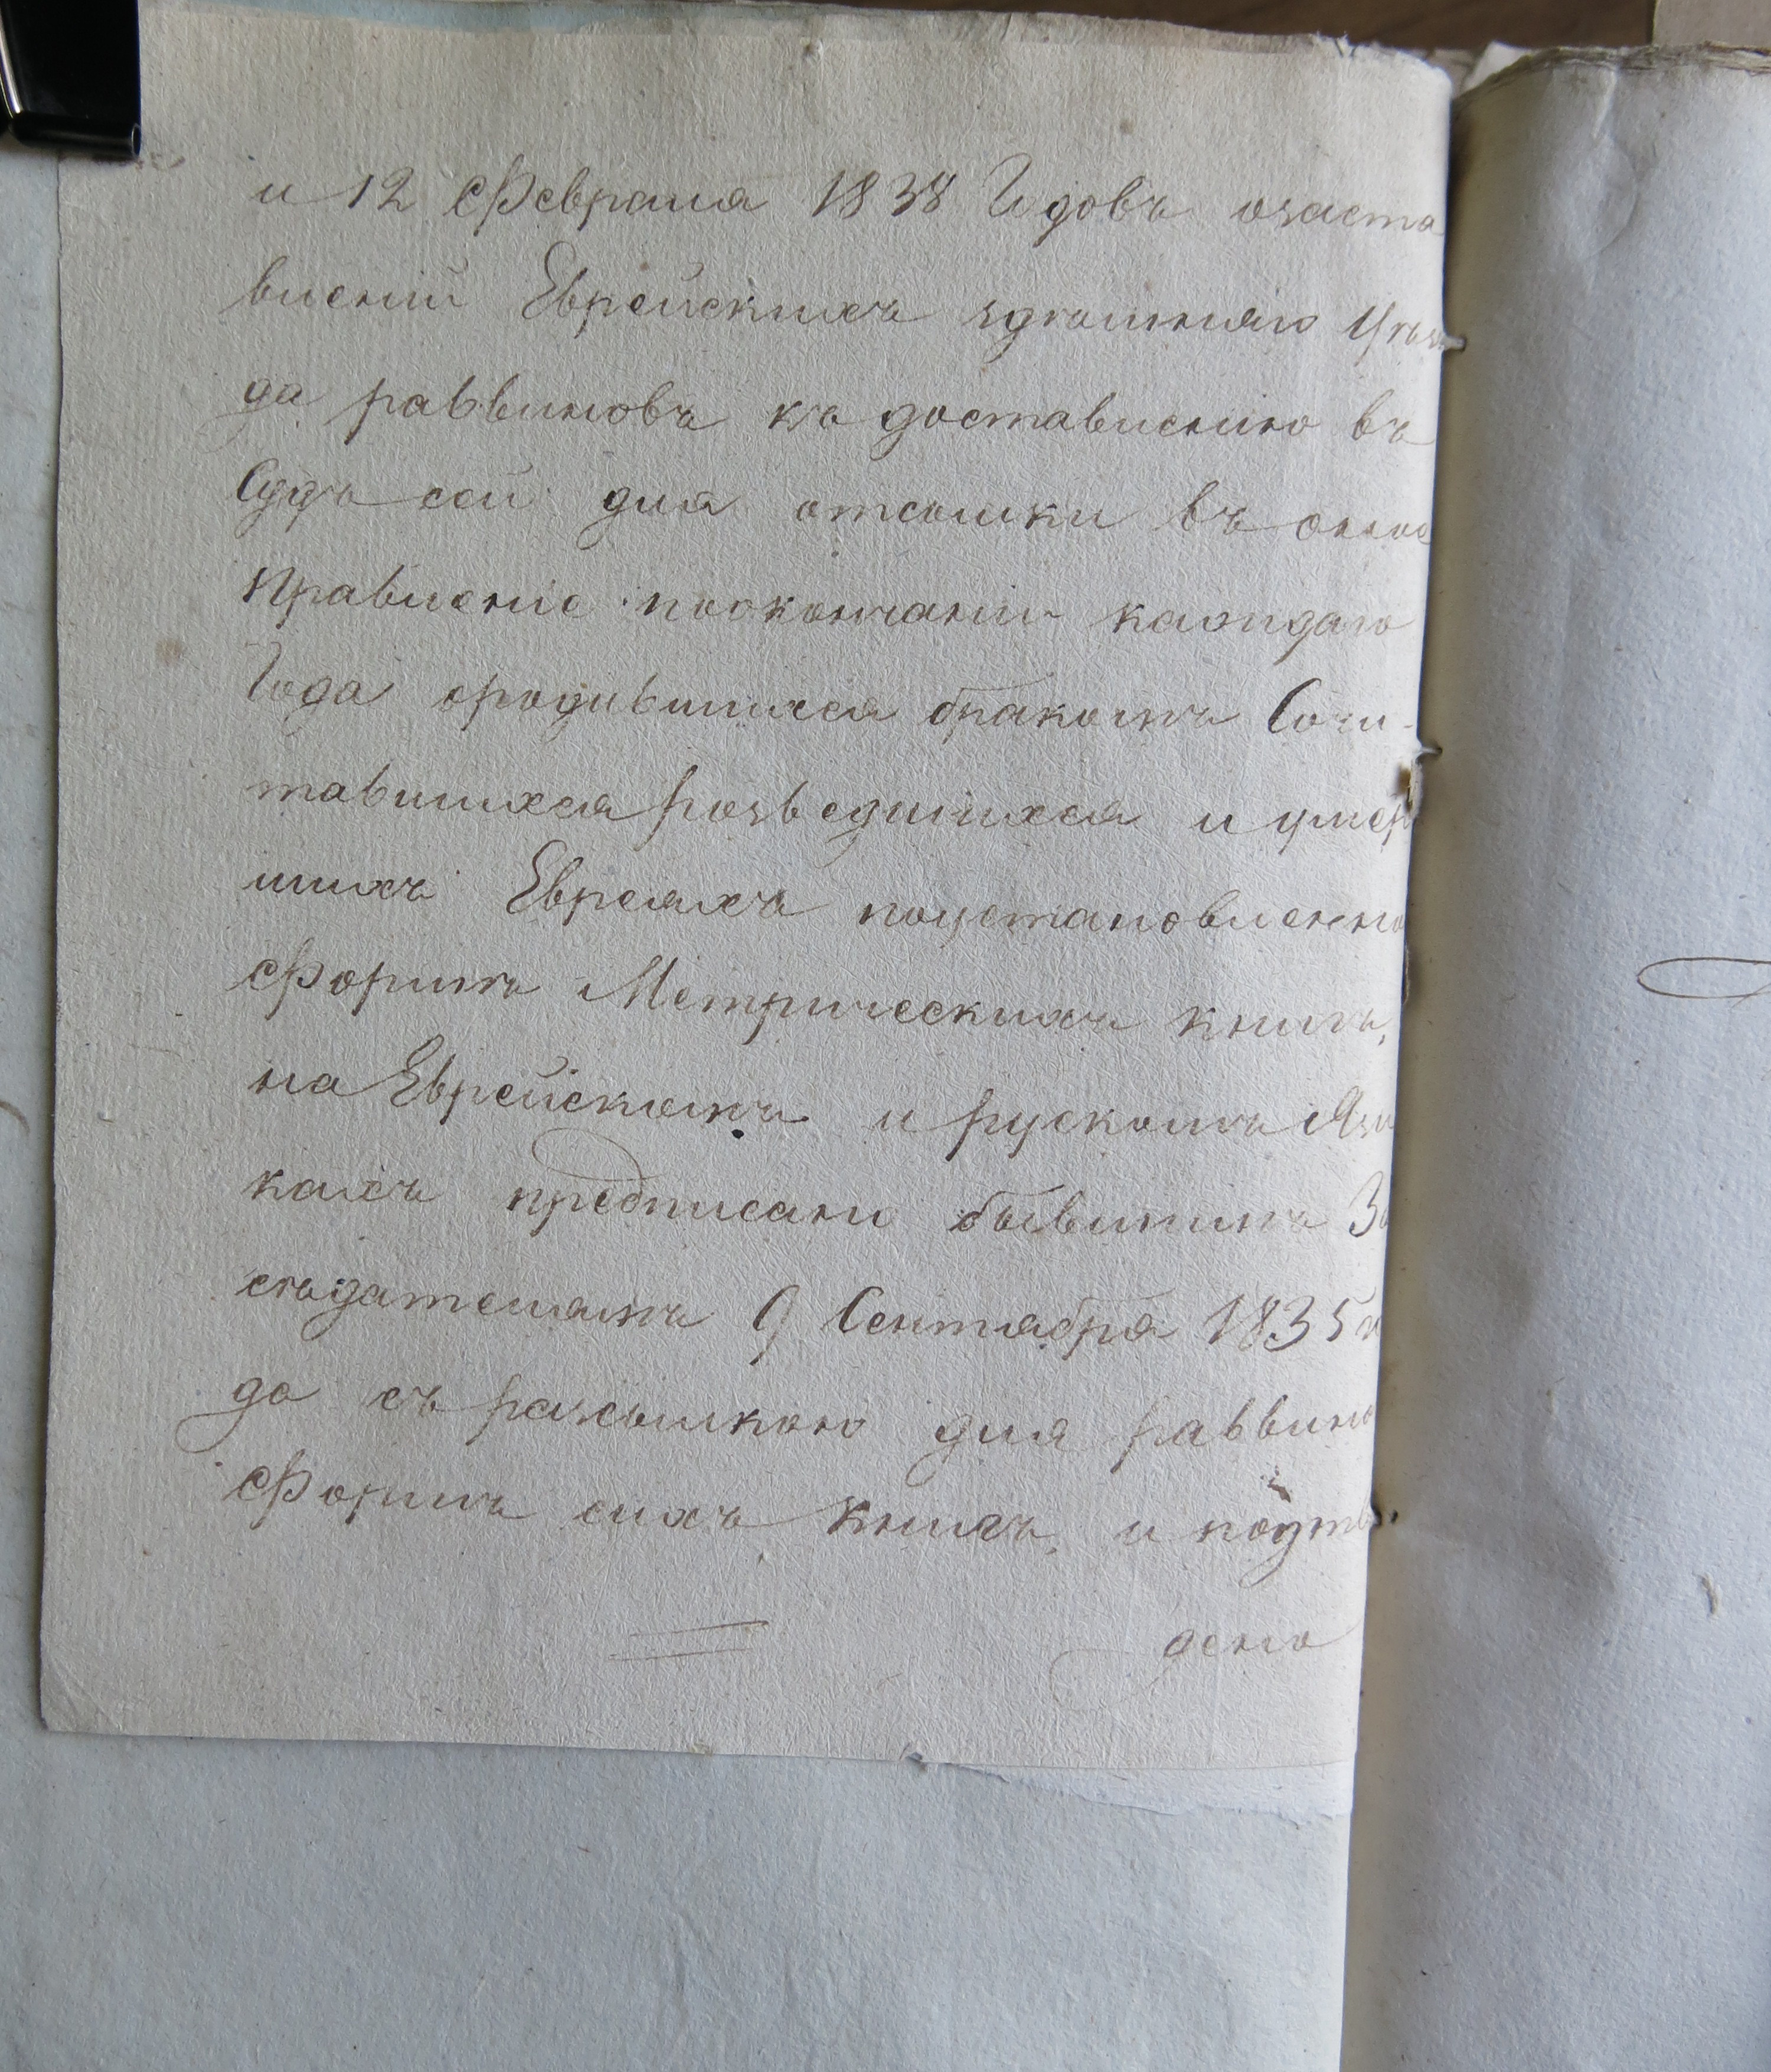 и 12 Февраля 1838 Годовъ озаста
влении Еврейскихъ здѣшняго Уѣз
да раввиновъ къ доставлению въ
Судъ сей для отсылки въ оное
Правление поокончании каждаго
Года ородившихся бракомъ Сочи-
тавшихся розведшихся и умер
шихъ Евреяхъ поустановленно
Формѣ Метрическихъ книгъ,
на Еврейскомъ и рускомъ Язы
кахъ предписано бывшимъ За
сѣдателямъ 9 Сентября 1835 го
да съ разсылкою для раввино
Формъ сихъ книгъ, и подтв
дено